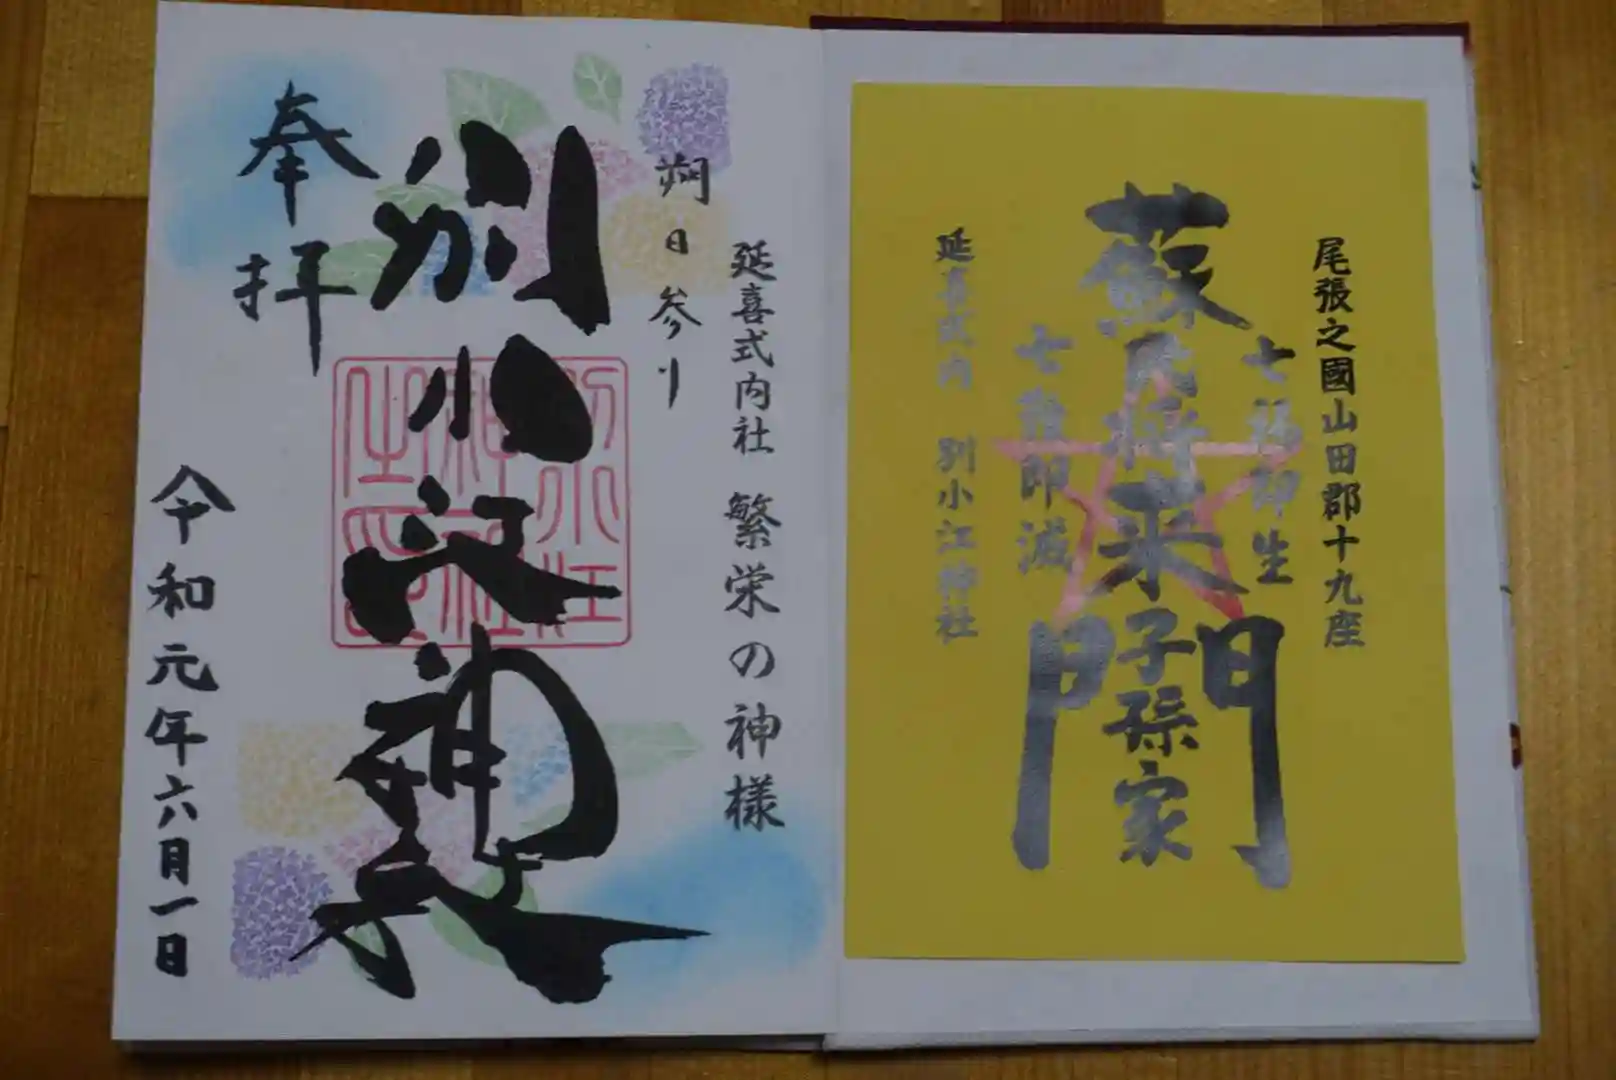 尾張之國山田郡十九座
七福即生
蘇民将来子孫家門
七難即滅
延喜式内 別小江神社
延喜式内社 繁栄の神様
朔日参り
別小江神社
奉拝
令和元年六月一日